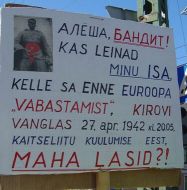 АЛЁША, БАНДИТ!
KAS LEINAD
MINU ISA,
KELLE SA ENNE EUROOPA
"VABASTAMIST", KIROVI
VANGLAS 27. apr. 1942 kl. 20.05,
KAITSELIITU KUULUMISE EEST,
MAHA LASID?!